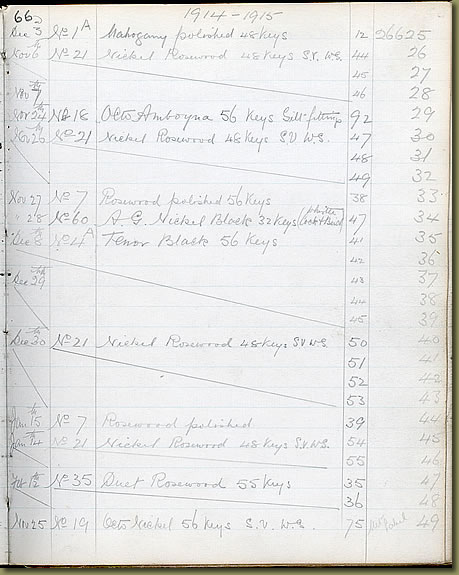 66 1914-1915
Dec 3 No 1A Mahogany polished 48 Keys 12 26625
Nov 6th No 21 Nickel Rosewood 48 Keys S.V. W.S. 44 26
45 27
Nov 7th 46 28
Nov 24th No 18 Octo Amboyna 56 Keys Gilt fittings 92 29
Nov 26th No 21 Nickel Rosewood 48 Keys S.V. W.S. 47 30
48 31
49 32
Nov 27 No 7 Rosewood polished 56 Keys 38 33
" 28 No 60 A.G. Nickel Black 32 Keys 47 34
Dec 8th No 4A Tenor Black 56 Keys 41 35
42 36
Dec 29th 43 37
44 38
45 39
Dec 30th No 21 Nickel Rosewood 48 Keys S.V. W.S. 50 40
51 41
52 42
53 43
Jan 15th No 7 Rosewood polished 39 44
Jan 14th No 21 Nickel Rosewood 48 Keys S.V. W.S. 54 45
55 46
Feb 12th No 35 Duet Rosewood 55 Keys 35 47
36 48
Nov 25 No 19 Octo Nickel 56 Keys S.V. W.S. 75 49